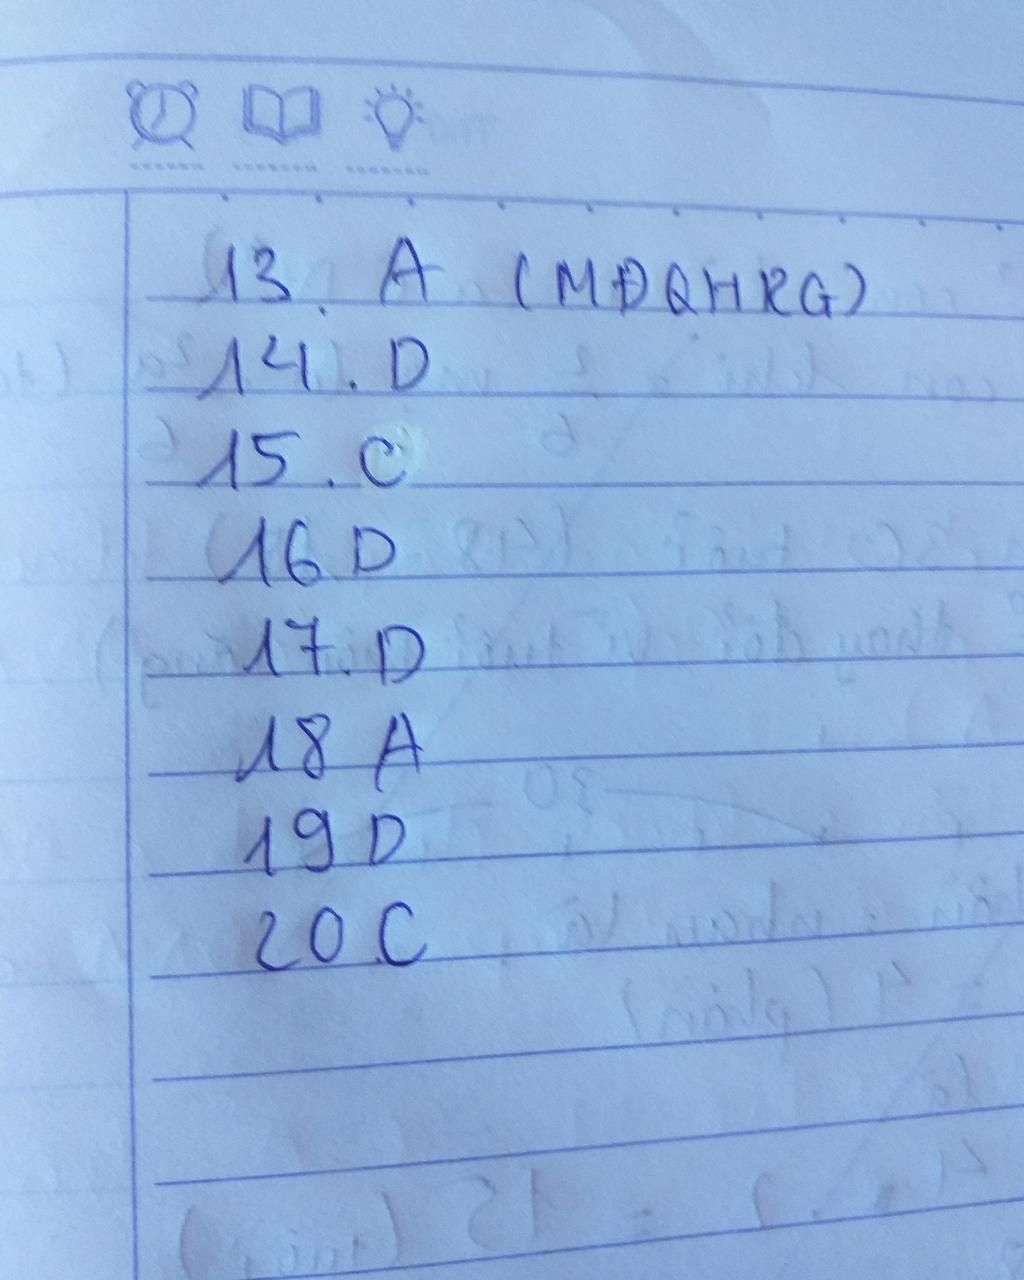 13. A (MĐQHRG)
14. D
15. C
16 D
17. D
18 A
19 D
20 C